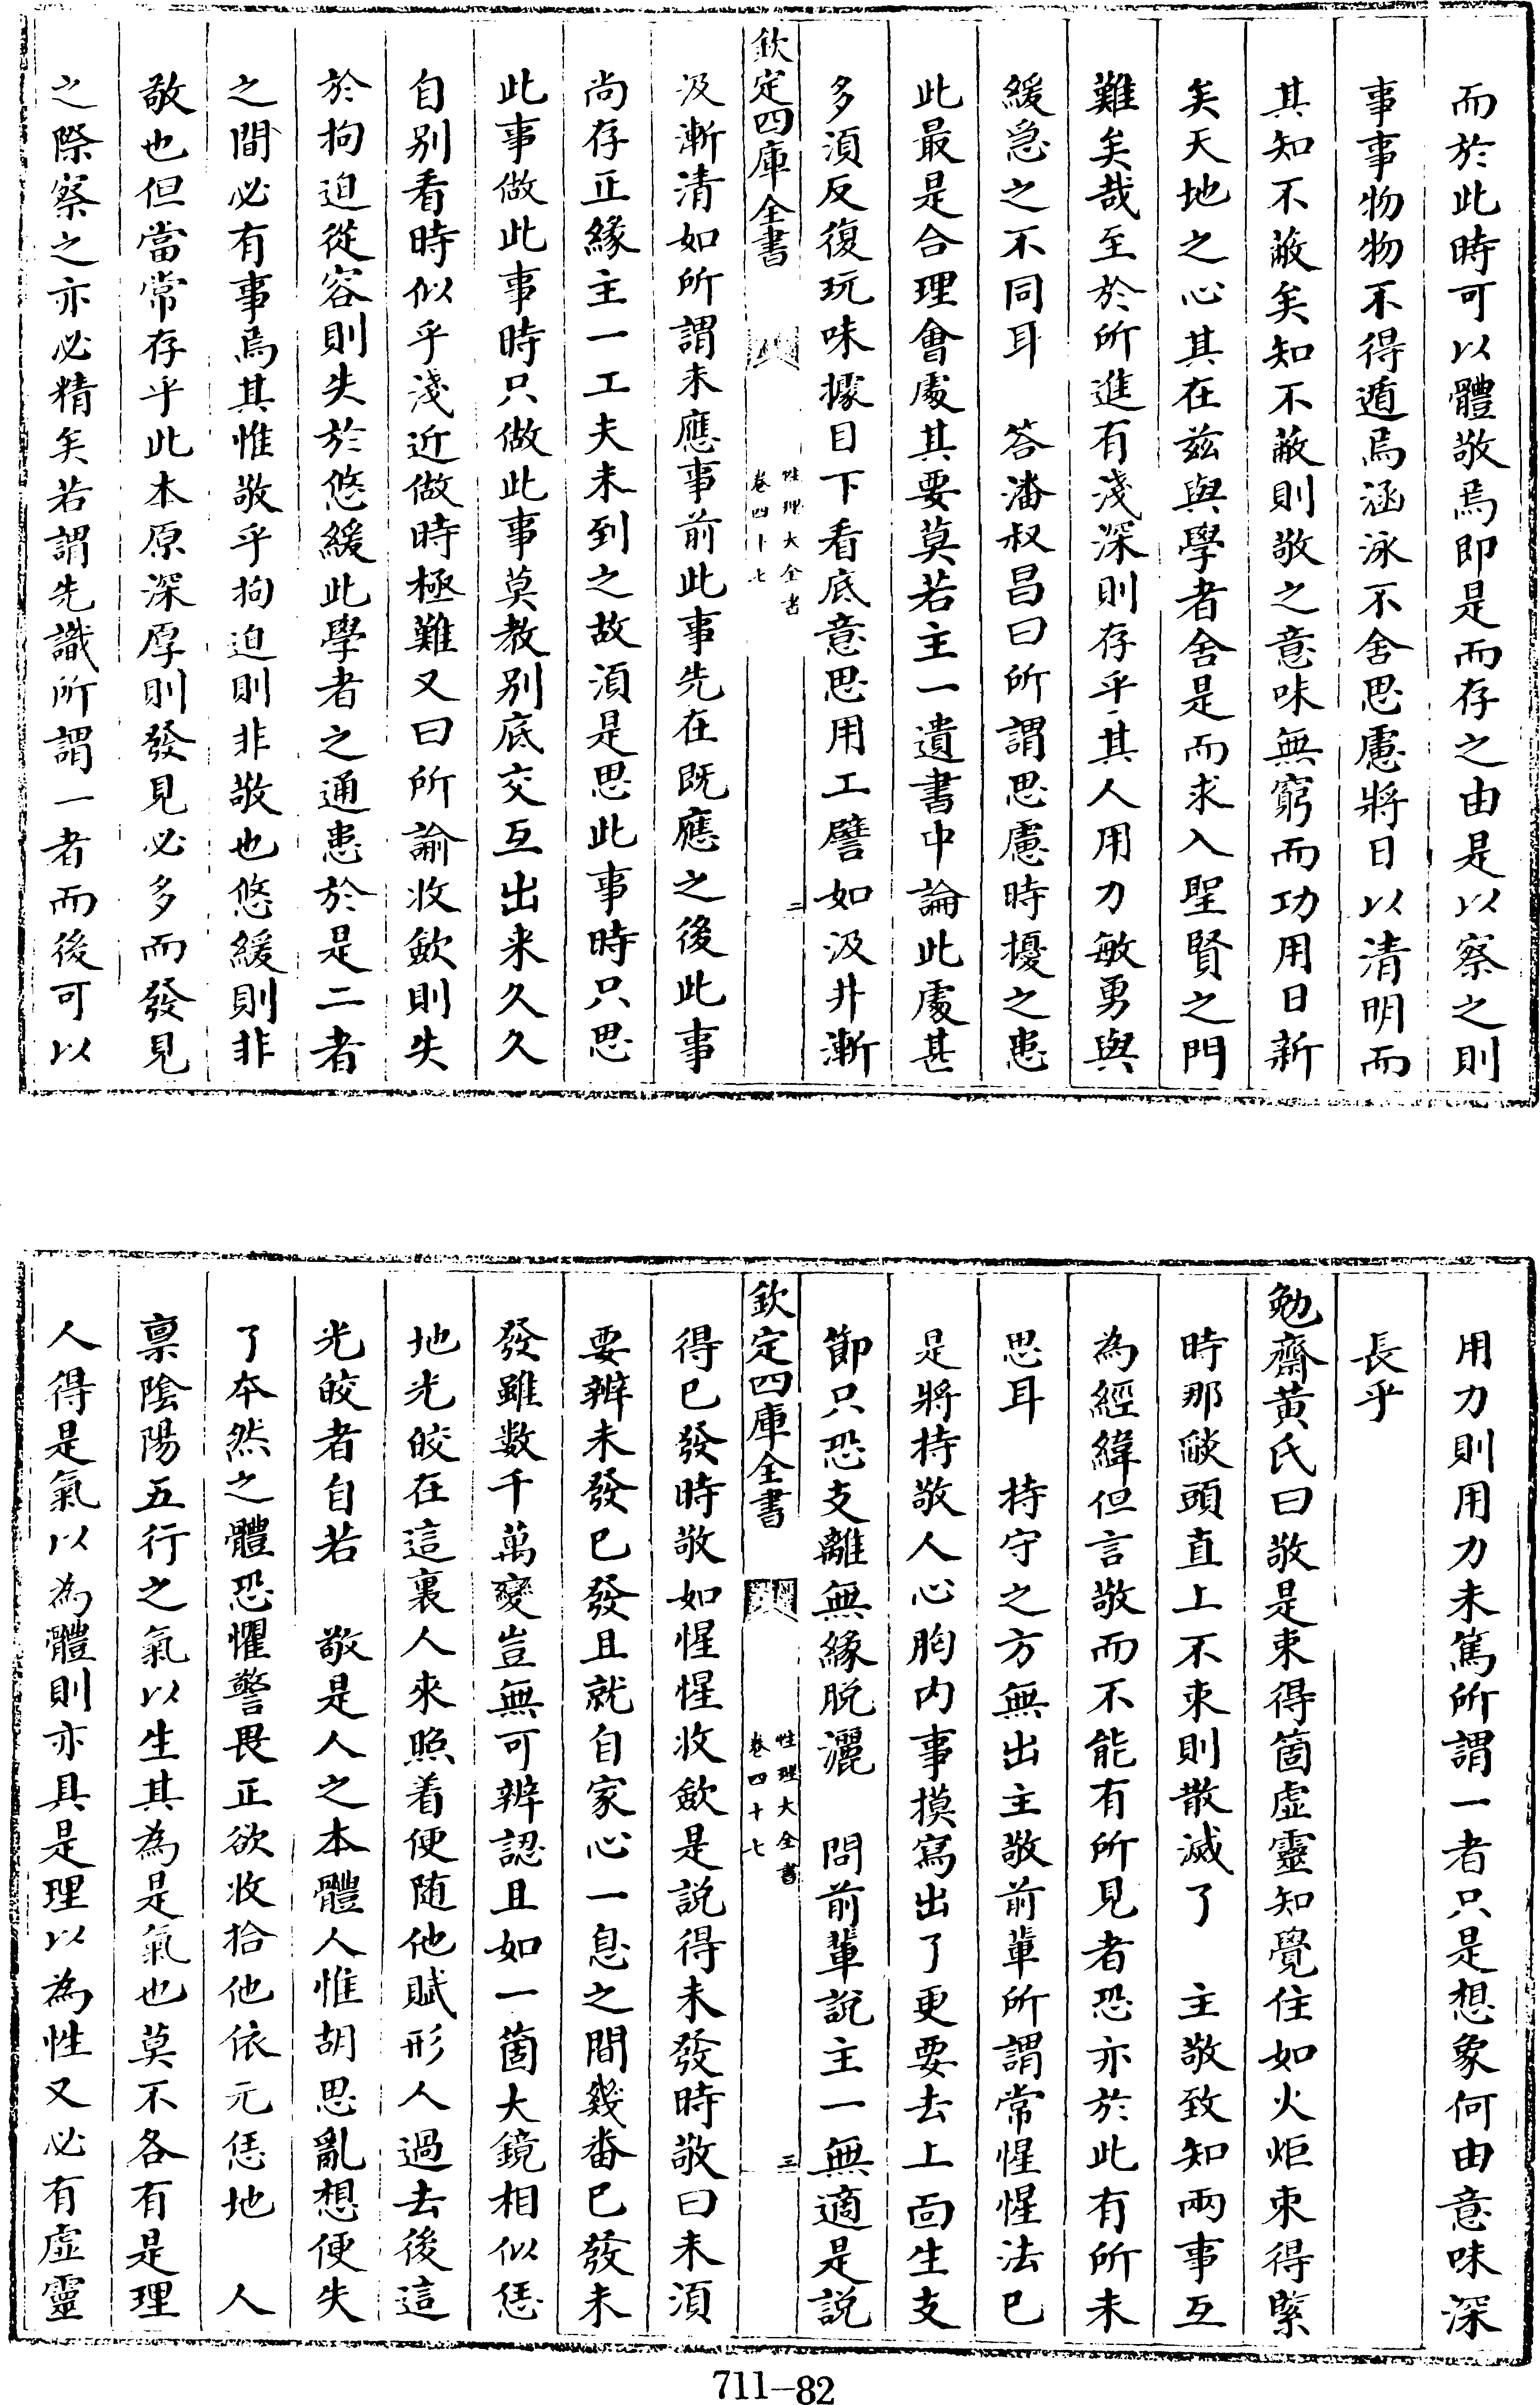 而於此時可以體敬焉即是而存之由是以察之則
事事物物不得遁焉涵泳不舍思慮將日以清明而
其知不蔽矣知不蔽則敬之意味無窮而功用日新
矣天地之心其在兹與學者舍是而求入聖賢之門
難矣哉至於所進有淺深則存乎其人用力敏勇與
緩急之不同耳　答潘叔昌曰所謂思慮時擾之患
此最是合理會處其要莫若主一遺書中論此處甚
多須反復玩味據目下看底意思用工譬如汲井漸
欽定四庫全書
性理大全書
卷四十七
二
汲漸清如所謂未應事前此事先在既應之後此事
尚存正緣主一工夫未到之故須是思此事時只思
此事做此事時只做此事莫教别底交互出来久久
自别看時似乎淺近做時極難又曰所諭收斂則失
於拘迫從容則失於悠緩此學者之通患於是二者
之間必有事焉其惟敬乎拘迫則非敬也悠緩則非
敬也但當常存乎此本原深厚則發見必多而發見
之際察之亦必精矣若謂先識所謂一者而後可以
用力則用力未篤所謂一者只是想象何由意味深
長乎
勉齋黄氏曰敬是束得箇虚靈知覺住如火炬束得緊
時那燄頭直上不束則散滅了　主敬致知兩事互
為經緯但言敬而不能有所見者恐亦於此有所未
思耳　持守之方無出主敬前輩所謂常惺惺法已
是將持敬人心胸内事摸寫出了更要去上面生支
節只恐支離無緣脱灑　問前輩説主一無適是説
欽定四庫全書
性理大全書
卷四十七
三
得已發時敬如惺惺收斂是説得未發時敬曰未須
要辨未發已發且就自家心一息之間幾番已發未
發雖数千萬變豈無可辨認且如一箇大鏡相似恁
地光皎在這裏人來照着便随他賦形人過去後這
光皎者自若　敬是人之本體人惟胡思亂想便失
了夲然之體恐懼警畏正欲收拾他依元恁地　人
禀陰陽五行之氣以生其為是氣也莫不各有是理
人得是氣以為體則亦具是理以為性又必有虚靈
711-82